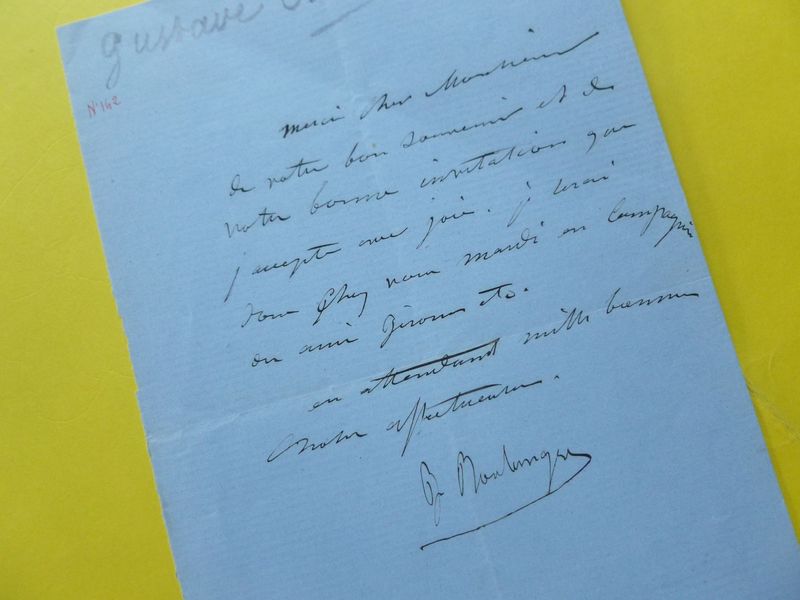 gustave
N°142
merci cher Monsieur
de votre bon souvenir et de
votre bonne invitation que
j'accepte avec joie. je serai
donc chez vous mardi en compagnie
du ami Gérome etc.
en attendant mille bonnes
choses affectueuses.
G. Boulanger